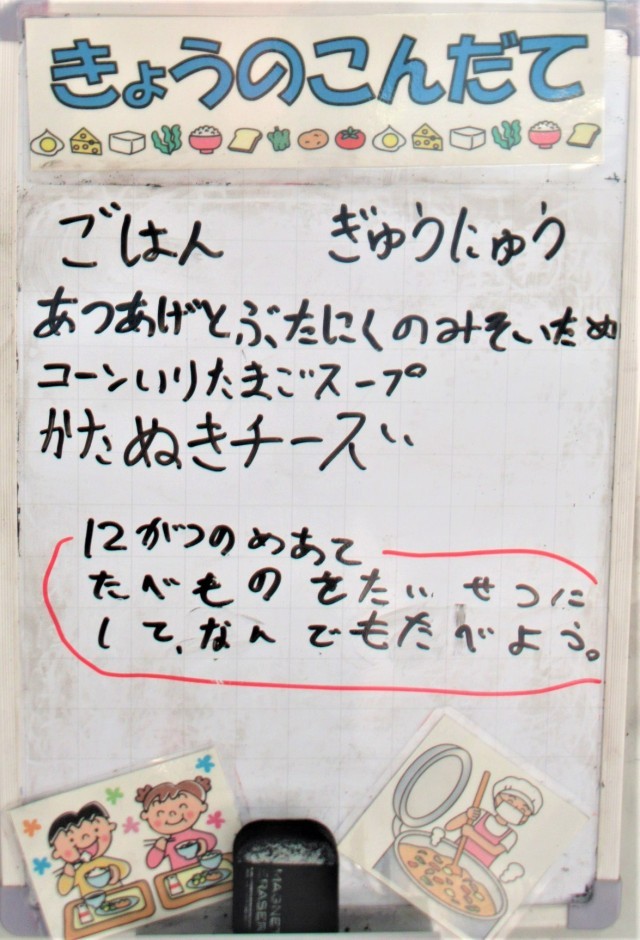 きょうのこんだて
ごはん　ぎゅうにゅう
あつあげとぶたにくのみそいため
コーンいりたまごスープ
かたぬきチーズ
12がつのめあて
たべものをたいせつに
して、なんでもたべよう。
MAGNET
ERASER